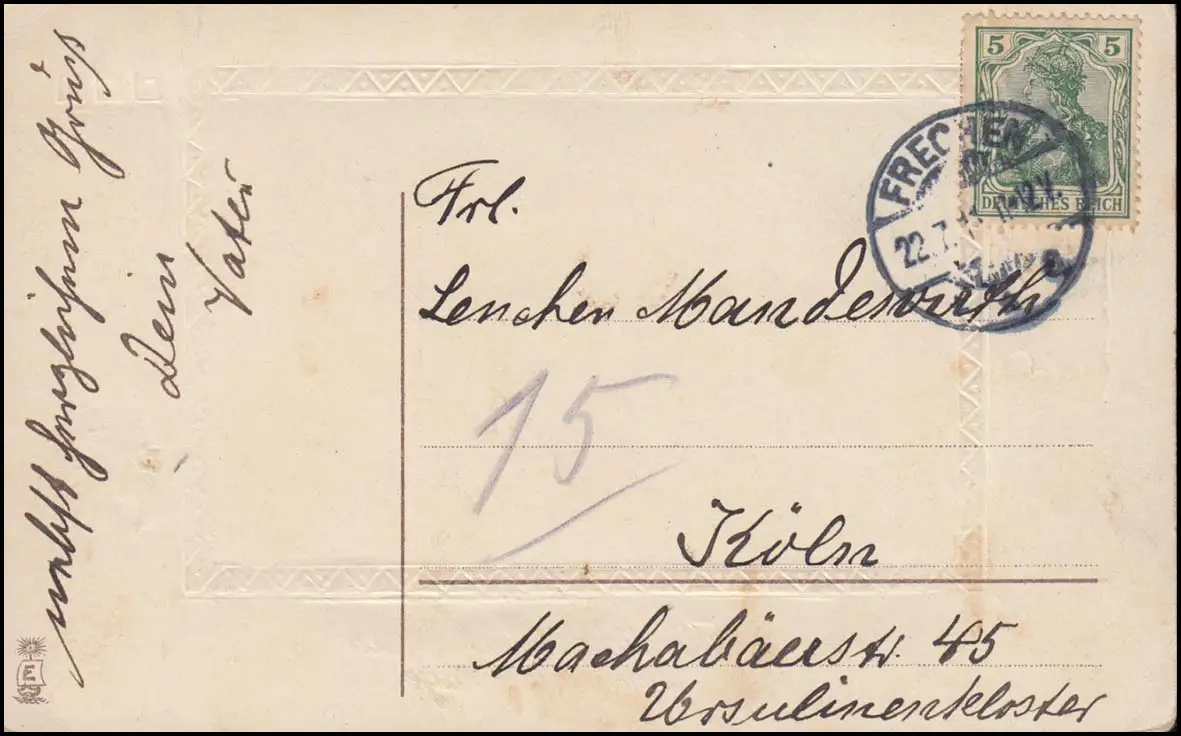 nebst herzlichem Gruß
Dein
Vater
5 5
DEUTSCHES REICH
FRECHEN
22.7.11 11-12V.
a
Frl.
Lenchen Manderwirth
15
Köln
Machabäerstr. 45
Ursulinenkloster
E